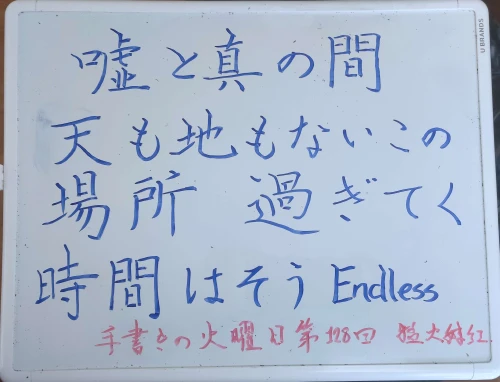 嘘と真の間
天も地もないこの
場所 過ぎてく
時間はそう Endless
手書きの火曜日第128回
U BRANDS